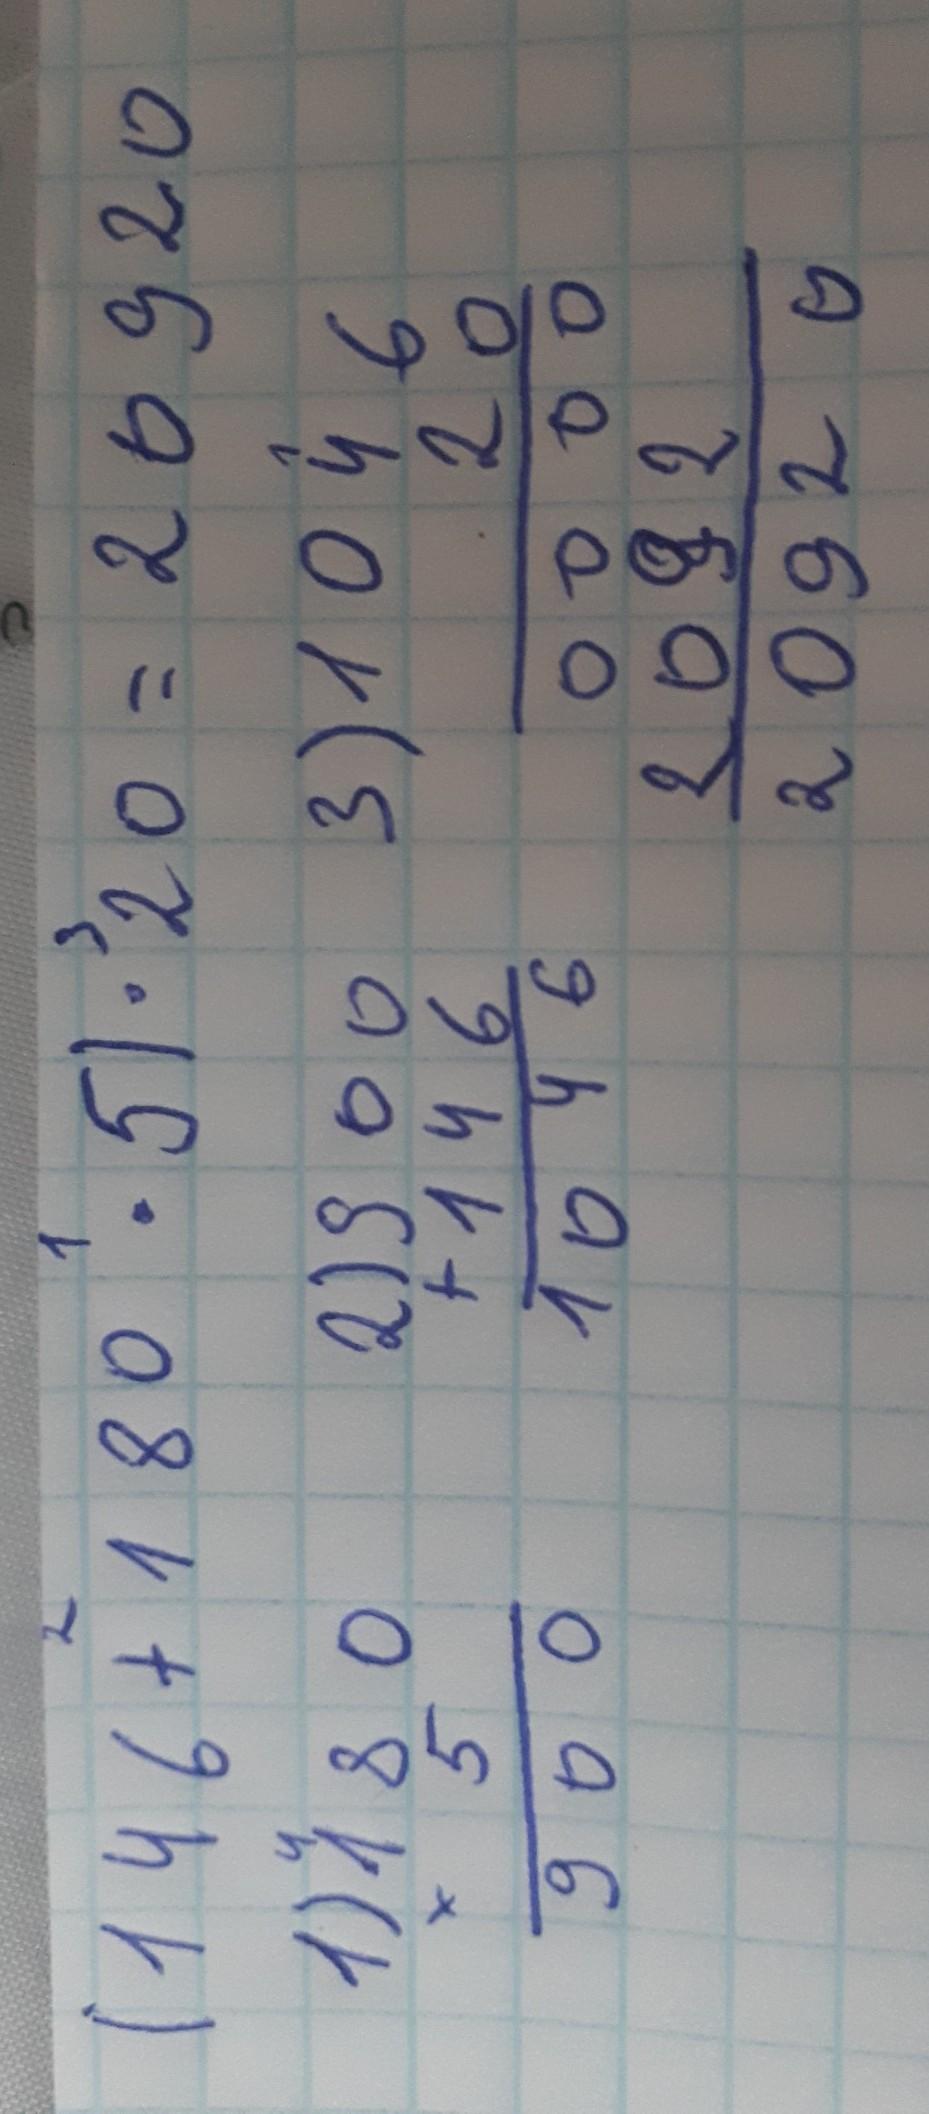 (146+180·5)·20=20920
1)180 2)900 3)1046
×5 +146 20
900 1046 0000
2092
20920